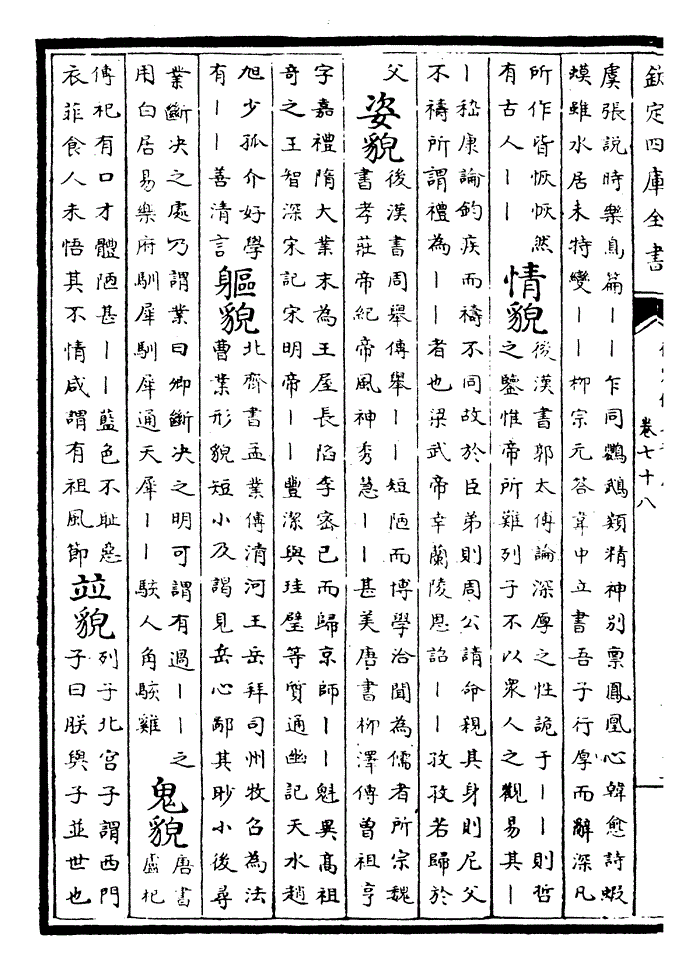 欽定四庫全書
卷七十八
虞張說時樂鳥篇丨丨乍同鸚鵡類精神別稟鳳凰心韓愈詩蝦
蟆雖水居未特變丨丨柳宗元答韋中立書吾子行厚而辭深凡
所作皆恢恢然
有古人丨丨
情貌
後漢書郭太傳論深厚之性詭于丨丨則哲
之鑒惟帝所難列子不以衆人之觀易其丨
丨嵇康論鈞疾而禱不同故於臣弟則周公請命親其身則尼父
不禱所謂禮為丨丨者也梁武帝幸蘭陵恩詔丨丨孜孜若歸於
父
姿貌
後漢書周舉傳舉丨丨短陋而博學洽聞為儒者所宗魏
書孝莊帝紀帝風神秀慧丨丨甚美唐書柳澤傳曾祖亨
字嘉禮隋大業末為王屋長陷李密已而歸京師丨丨魁異髙祖
奇之王智深宋記宋明帝丨丨豐潔與珪璧等質通幽記天水趙
旭少孤介好學
有丨丨善清言
軀貌
北齊書孟業傳清河王岳拜司州牧召為法
曹業形貌短小及謁見岳心鄙其眇小後尋
業斷決之處乃謂業曰卿斷決之明可謂有過丨丨之
用白居易樂府馴犀馴犀通天犀丨丨駭人角駭雞
鬼貌
唐書
盧杞
傳杞有口才體陋甚丨丨藍色不恥惡
衣菲食人未悟其不情咸謂有祖風節
竝貌
列子北宮子謂西門
子曰朕與子並世也